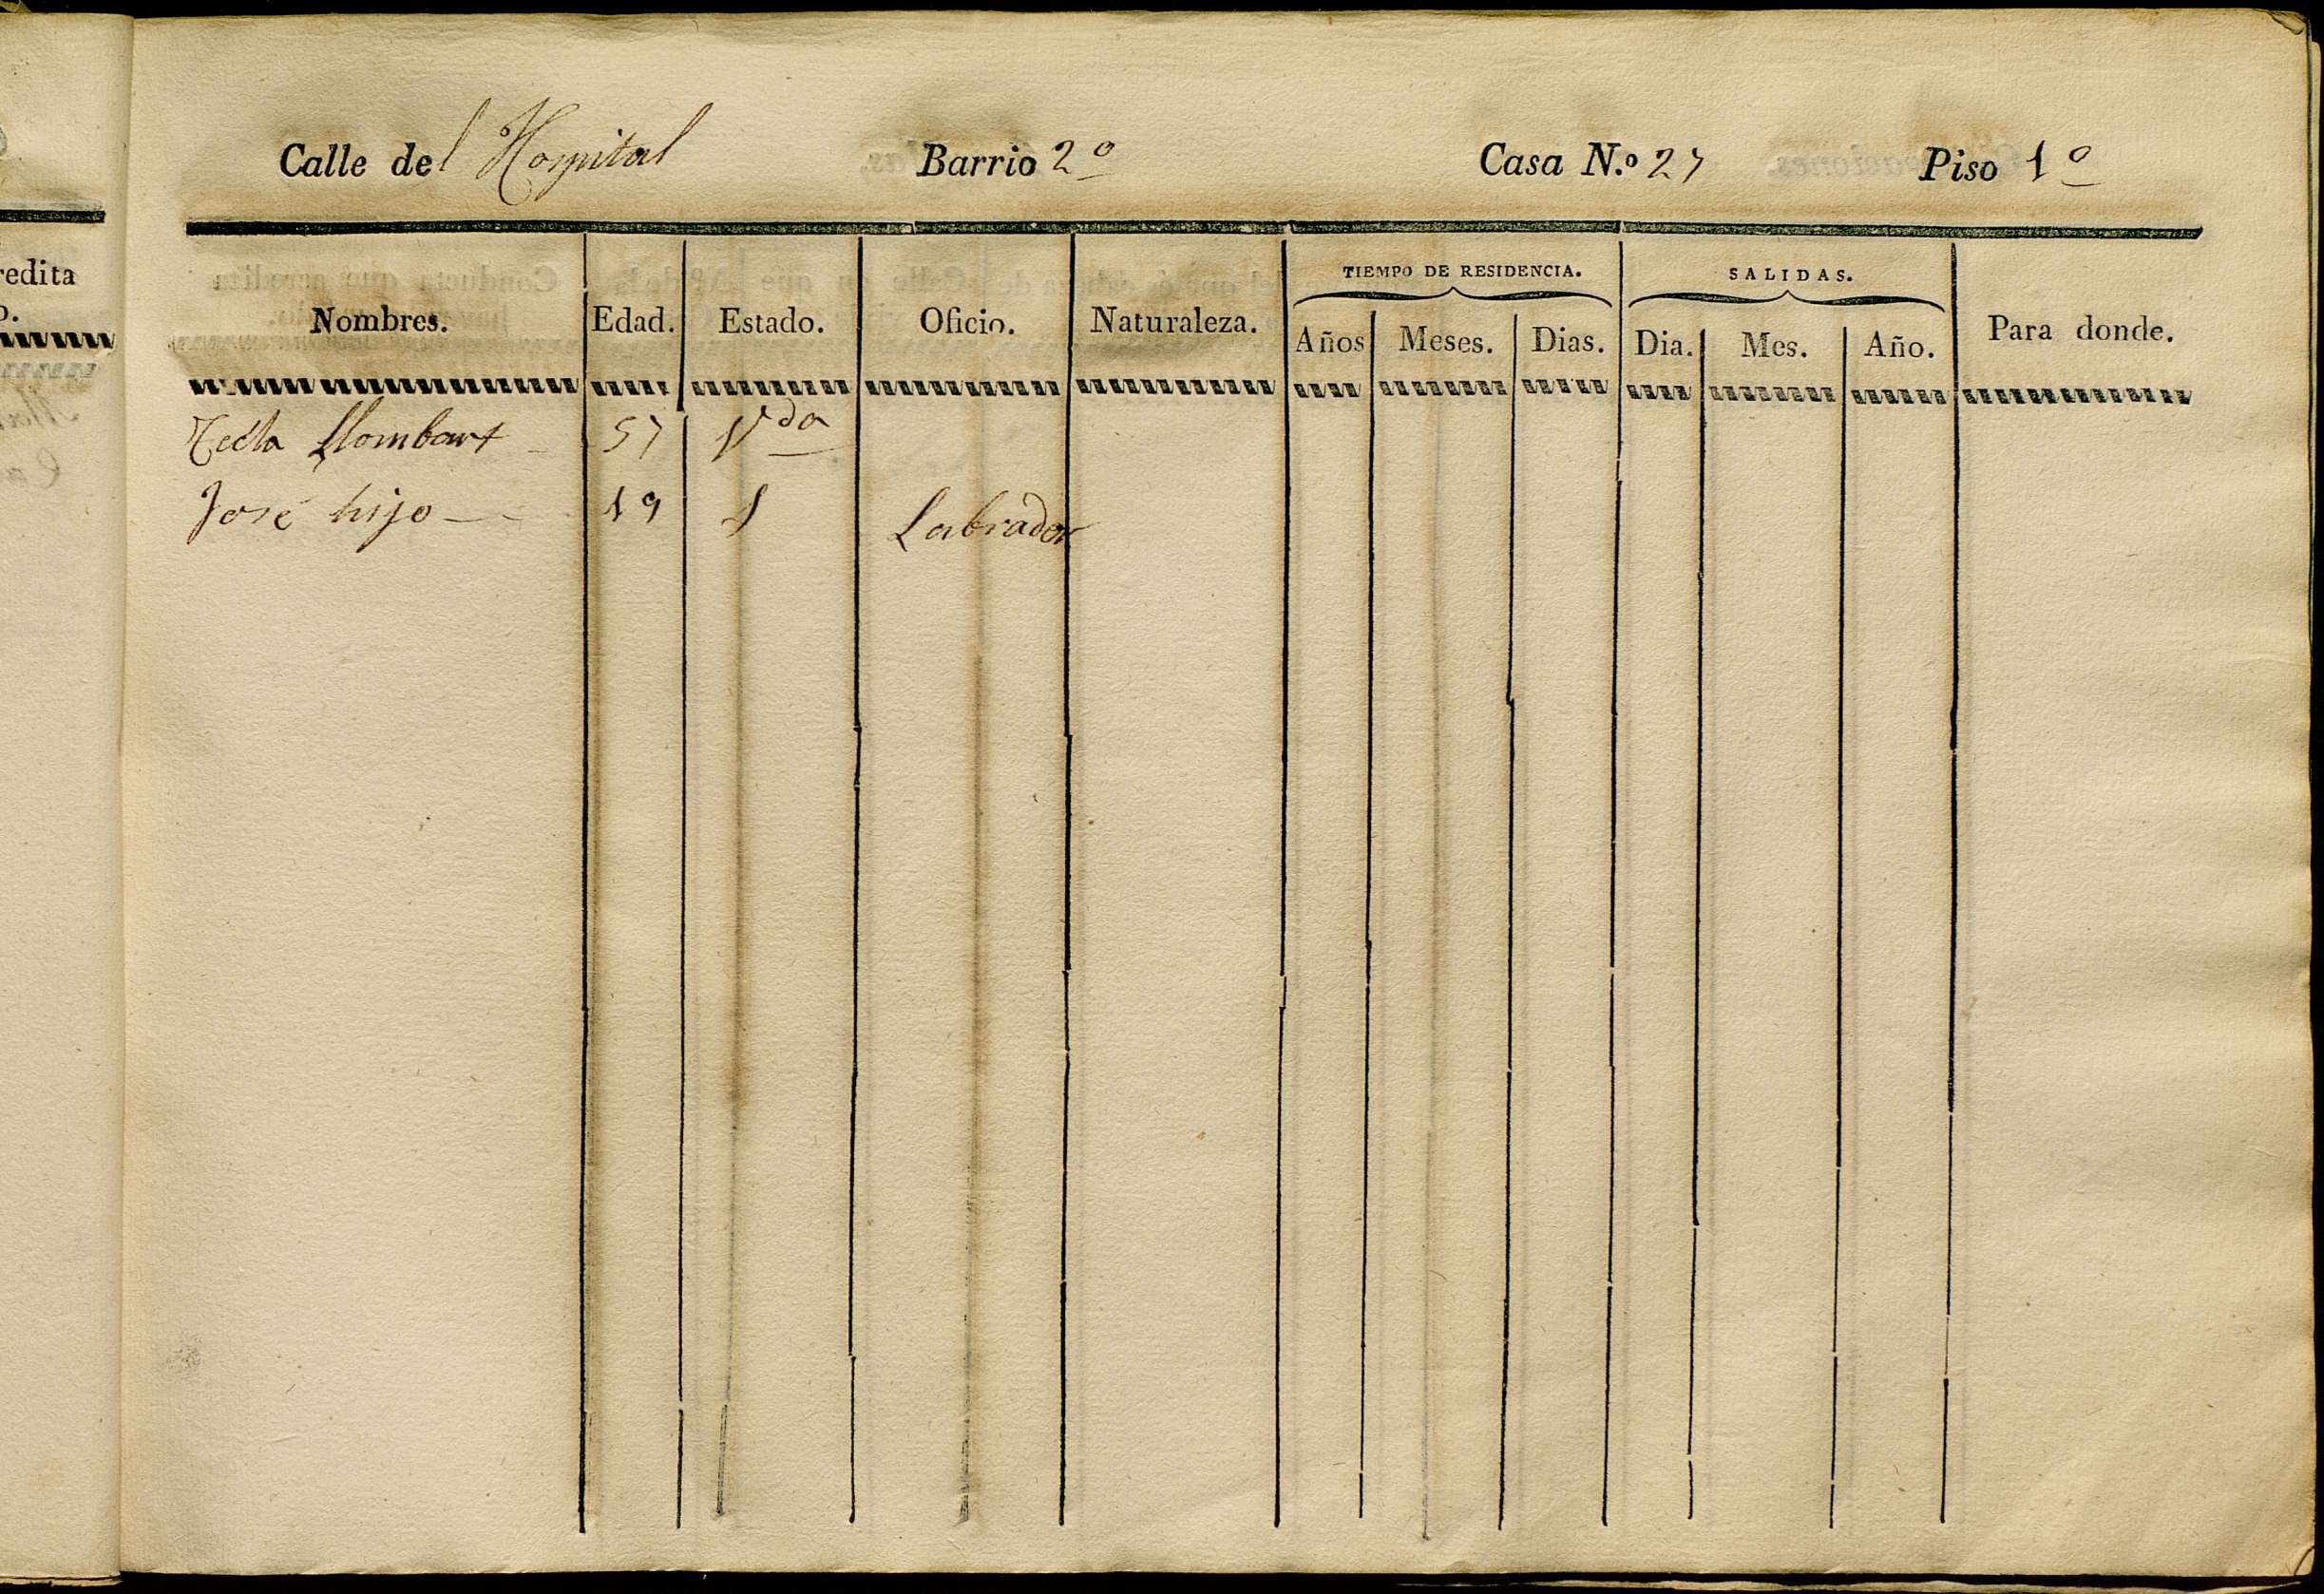 redita
o.
Calle del Hospital Barrio 2º Casa N.º 27 Piso 1º
TIEMPO DE RESIDENCIA. SALIDAS.
Nombres. Edad. Estado. Oficio. Naturaleza. Años Meses. Dias. Dia. Mes. Año. Para donde.
Tecla Llombart 57 Vda
José hijo 19 S Labrador